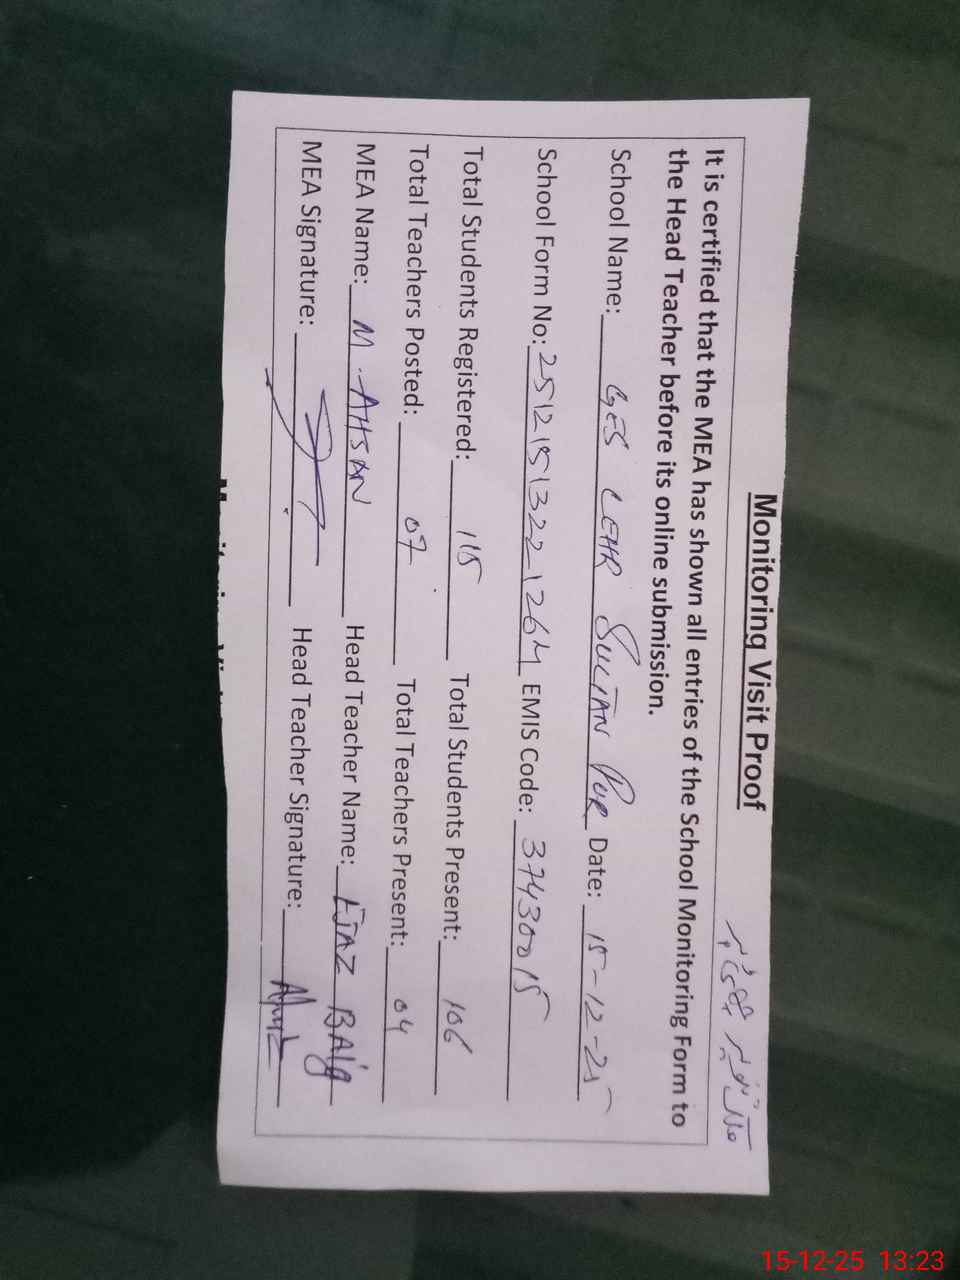 Monitoring Visit Proof
It is certified that the MEA has shown all entries of the School Monitoring Form to
the Head Teacher before its online submission.
School Name: GES LEHR SULTAN PUR Date: 15-12-25
School Form No: 2512151322126M EMIS Code: 37430015
Total Students Registered: 115 Total Students Present: 106
Total Teachers Posted: 07 Total Teachers Present: 04
MEA Name: M. AHSAN Head Teacher Name: EJAZ BAIg
MEA Signature: Head Teacher Signature:
15-12-25 13:23